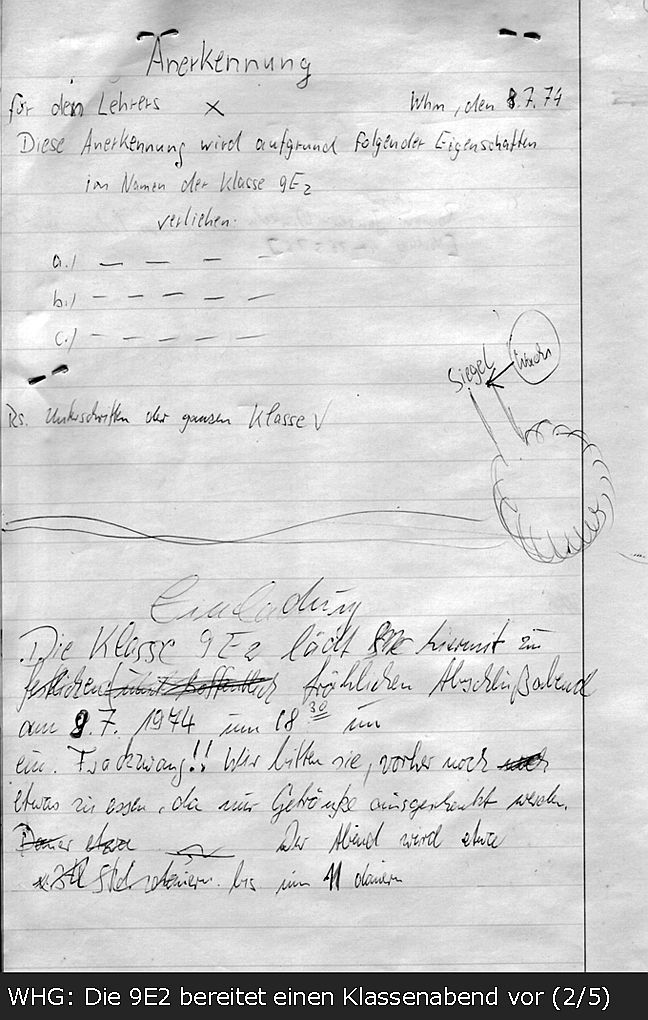 Anerkennung
für den Lehrers X Whm, den 8.7.74
Diese Anerkennung wird aufgrund folgender Eigenschaften
im Namen der Klasse 9E2
verliehen.
a.) — — — —
b.) — — — — —
c.) — — — — —
Siegel
Rs. Unterschriften der ganzen Klasse √
Einladung
Die Klasse 9E2 lädt Sie hiermit zu
festlichen fröhlichen Abschlußabend
am 9.7. 1974 um 18 30 im
ein. Frackzwang!! Wir bitten sie, vorher noch
etwas zu essen, da nur Getränke ausgeschenkt werden.
Dauer etwa Der Abend wird etwa
bis um 11 dauern
WHG: Die 9E2 bereitet einen Klassenabend vor (2/5)